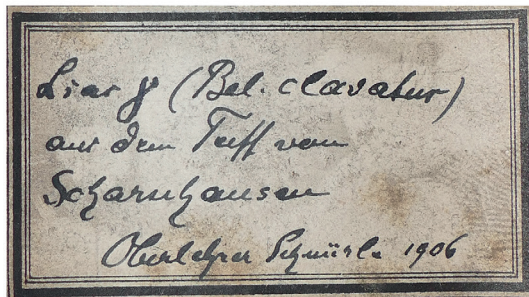 Lias γ (Bel. clavatus)
aus dem Tuff von
Scharnhausen
Oberlehrer 1906